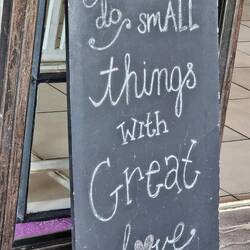 do smALL
things
with
Great
love